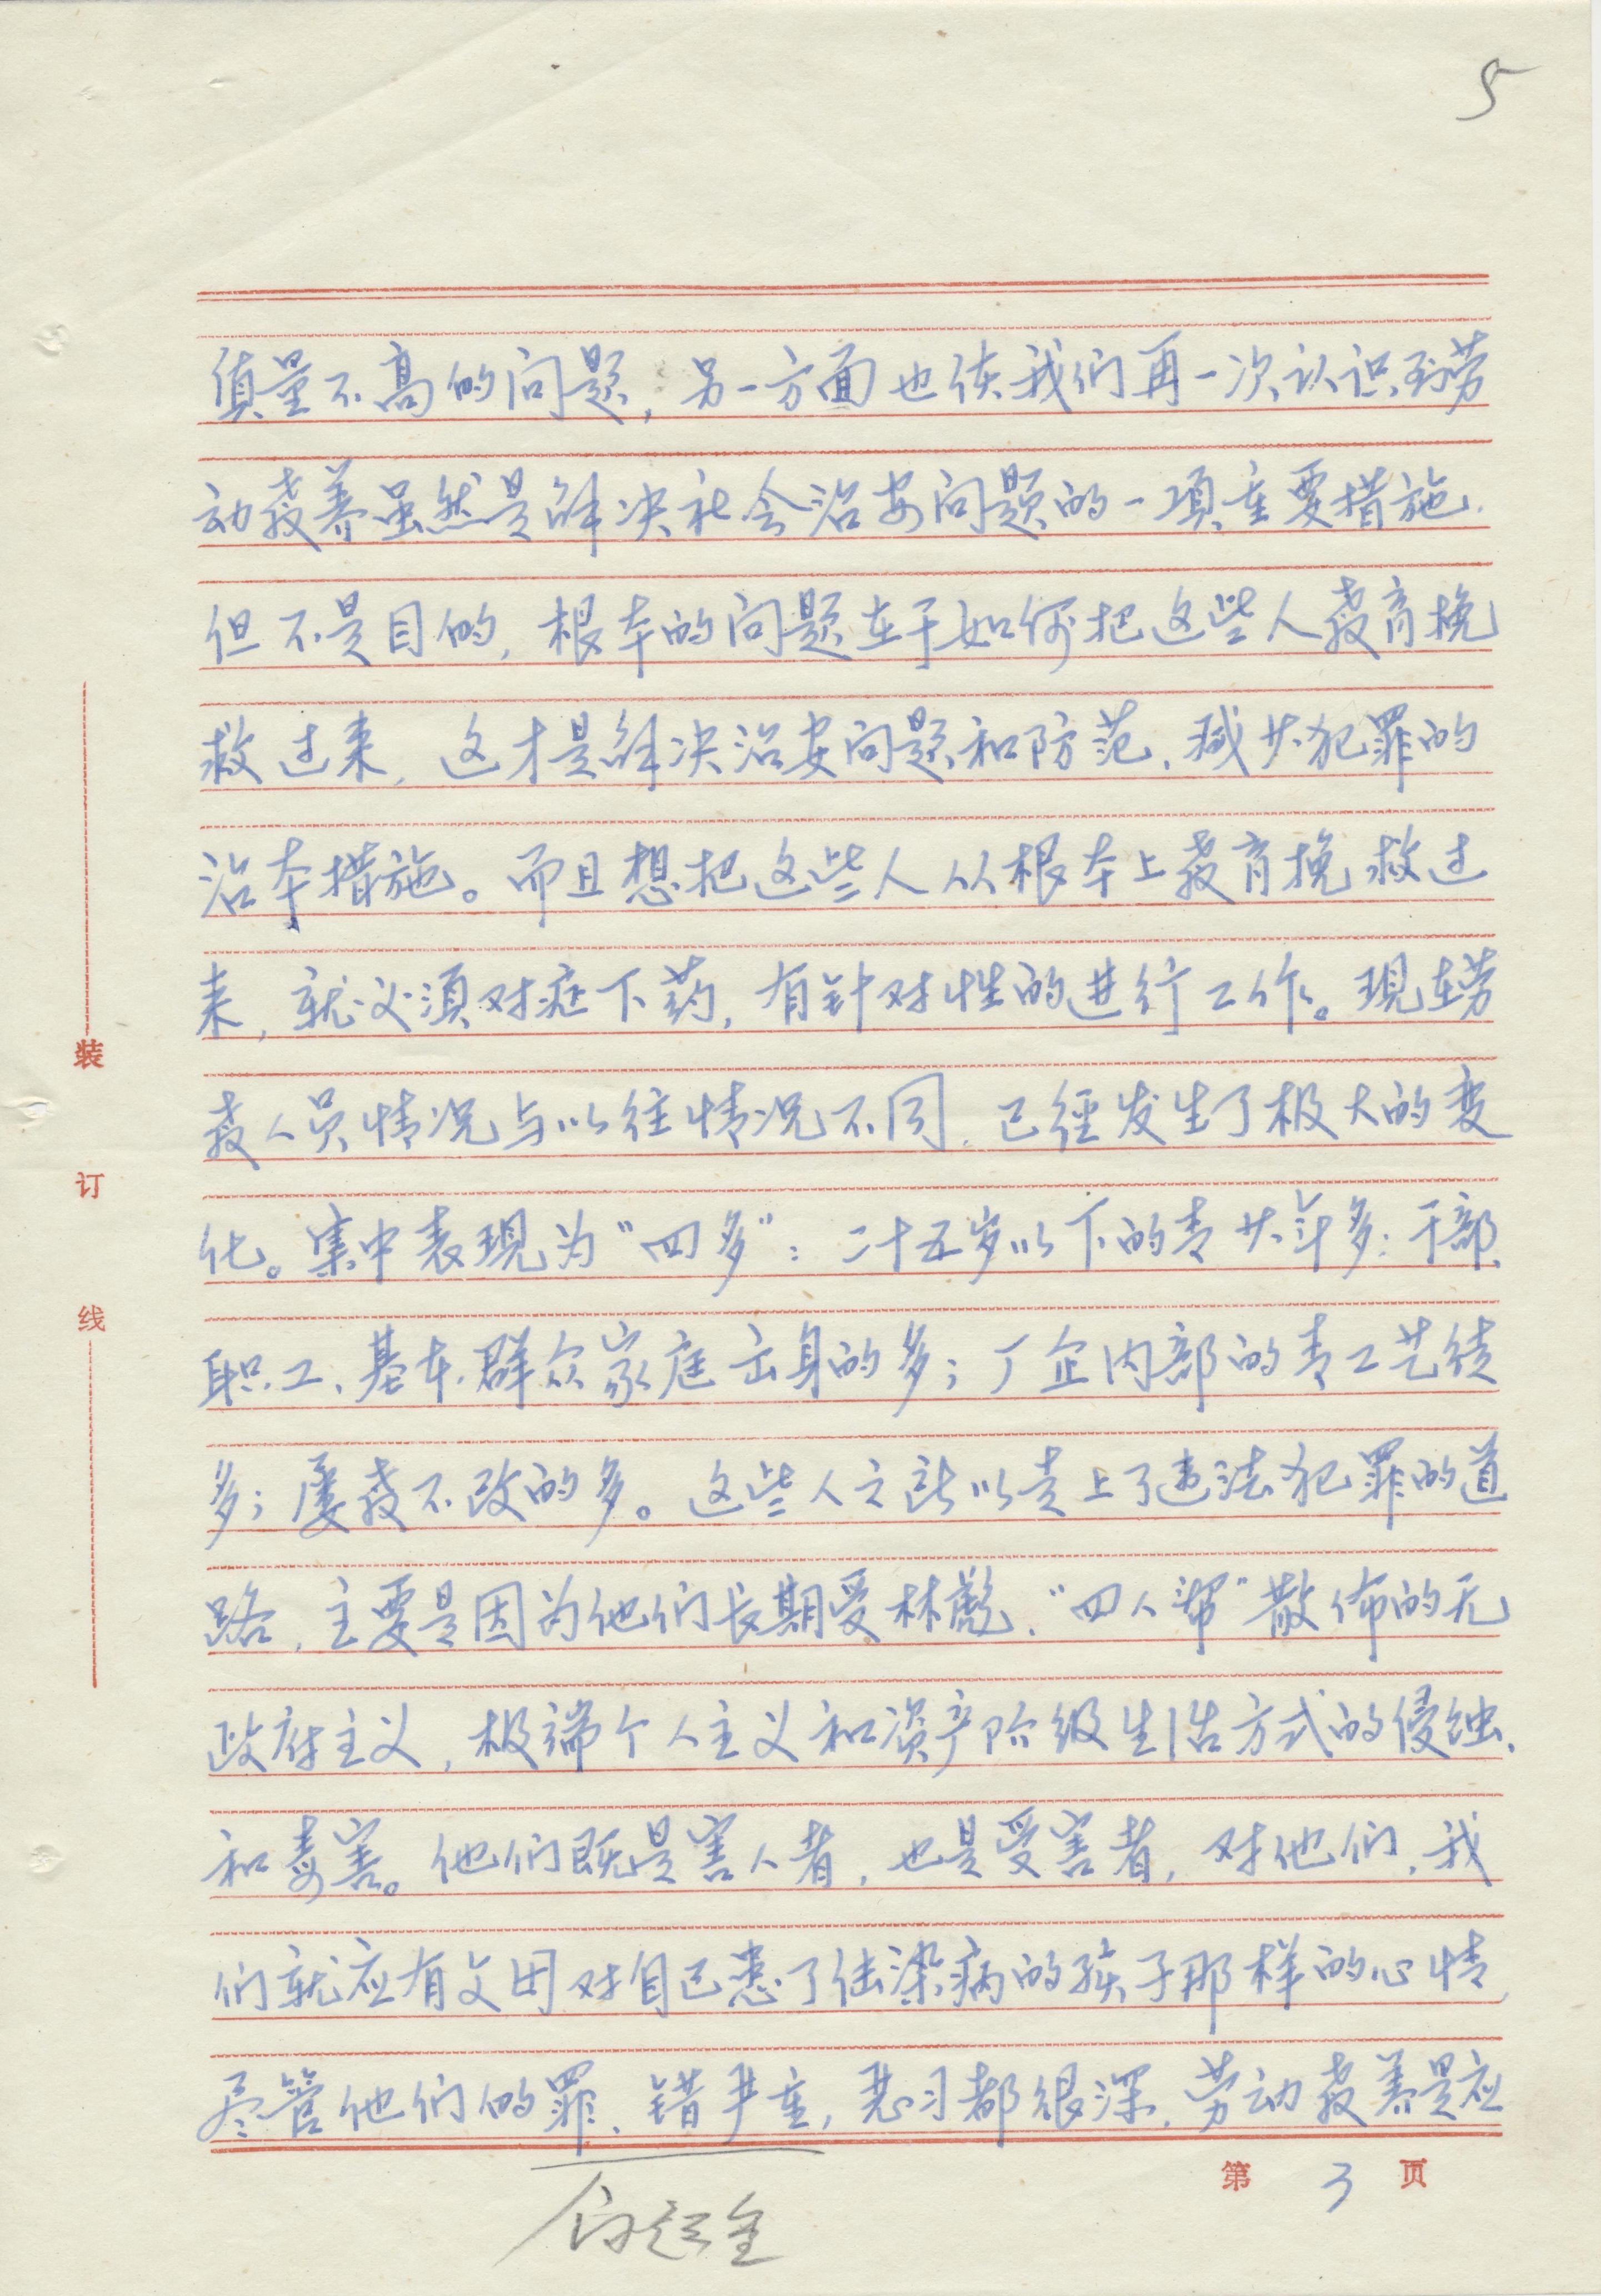 5
值量不高的问题，另一方面也使我们再一次认识到劳
动教养虽然是解决社会治安问题的一项重要措施，
但不是目的，根本的问题在于如何把这些人教育挽
救过来，这才是解决治安问题和防范、减少犯罪的
治本措施。而且想把这些人从根本上教育挽救过
来，就必须对症下药，有针对性的进行工作。现在劳
教人员情况与以往情况不同，已经发生了极大的变
化。集中表现为“四多”：二十五岁以下的青少年多；干部、
职工、基本群众家庭出身的多；厂企内部的青工艺徒
多；屡教不改的多。这些人之所以走上了违法犯罪的道
路，主要是因为他们长期受林彪、“四人帮”散佈的无
政府主义，极端个人主义和资产阶级生活方式的侵蚀、
和毒害。他们既是害人者，也是受害者，对他们，我
们就应有父母对自己患了传染病的孩子那样的心情，
尽管他们的罪、错严重，恶习都很深，劳动教养是应
第 3 页
装
订
线